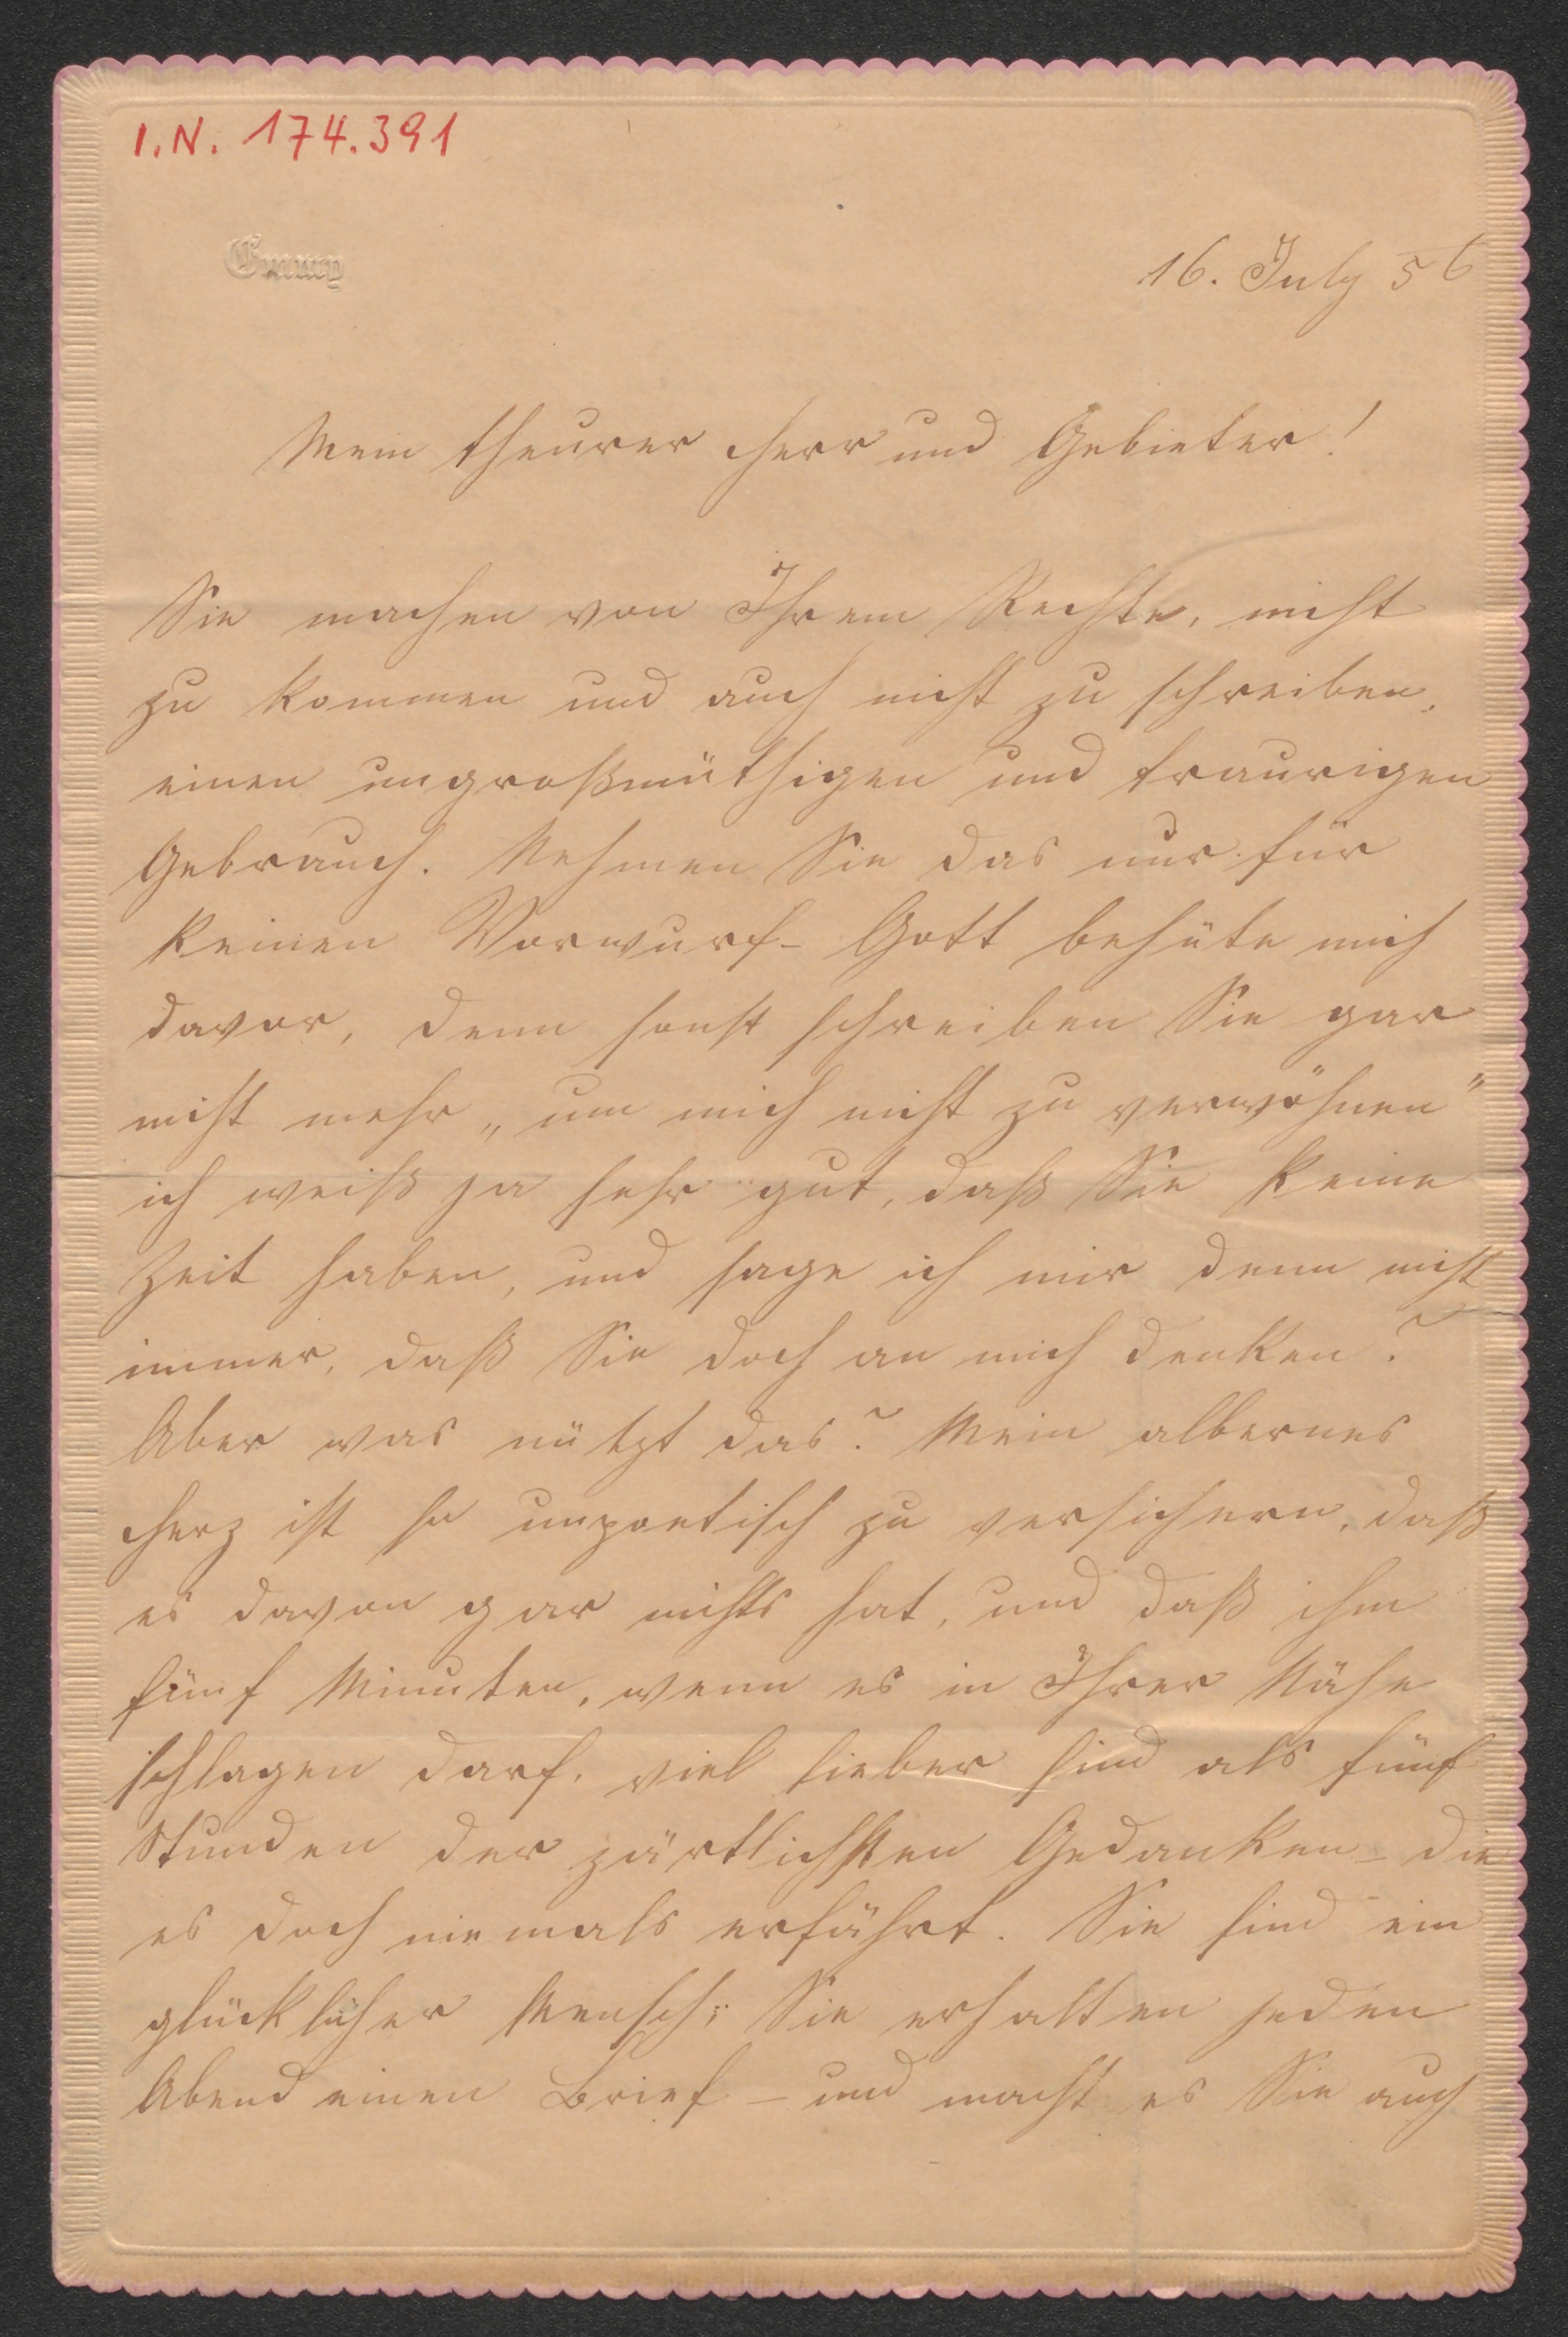 I.N. 174.391
Emmy
16. July 56
Mein theurer Herr und Gebieter!
Sie machen von Ihrem Rechte, nicht
zu kommen und auch nicht zu schreiben,
einen ungroßmüthigen und traurigen
Gebrauch. Nehmen Sie das nur für
keinen Vorwurf – Gott behüte mich
davor, denn sonst schreiben Sie gar
nicht mehr „um mich nicht zu verwöhnen"
ich weiß ja sehr gut, daß Sie keine
Zeit haben, und sage ich mir denn nicht
immer, daß Sie doch an mich denken?
Aber was nützt das? Mein albernes
Herz ist so unpoetisch zu versichern, daß
es davon gar nichts hat, und daß ihm
fünf Minuten, wenn es in Ihrer Nähe
schlagen darf, viel lieber sind als fünf
Stunden der zärtlichsten Gedanken – die
es doch niemals erfährt. Sie sind ein
glücklicher Mensch; Sie erhalten jeden
Abend einen Brief – und macht es Sie auch